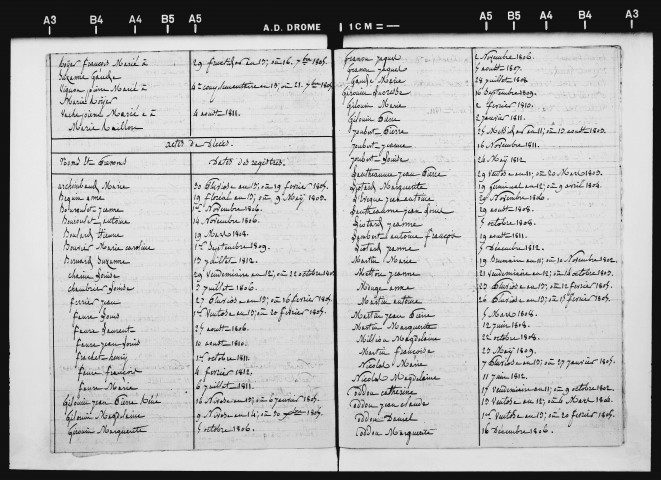 A3 B4 A4 B5 A5 A.D. DROME 1CM= A5 B5 A4 B4 A3
hoyer françois Marié à 29 fructidor an 13; ou 16. 7bre 1805.
Suzanne
Vignon pierre Marié à 4e complémentaire an 13, ou 21. 7bre 1805.
Marie hoyer
Vache pierre Marié à 4 aoust 1811.
Marie
actes de décès.
Noms et Prénoms Dates des registres.
archimbaud Marie 30 Pluviose an 13; ou 19 fevrier 1805.
Begou anne 19 floreal an 13; ou 9 May 1805.
jeanne 1er Novembre 1806.
antoine 14 Novembre 1806.
Etienne 19 Mars 1808.
Bouvier Marie caroline 1er Septembre 1809.
Bernard Suzanne 13 juillet 1812.
chaix Louise 29 vendemiaire an 12; ou 22 octobre 1803
chambrier Louise 3 juillet 1806.
ferrier jean 27 Pluviose an 13; ou 16 fevrier 1805.
faure Louis 1er Ventose an 13; ou 20 fevrier 1805.
faure Laurent 25 aoust 1806.
faure jean Louis 10 aoust 1810.
frachet henry 1er octobre 1811.
faure françois 4 fevrier 1812.
faure Marie 6 juillet 1811.
Gilouin jean Pierre 16 Nivose an 13; ou 6 janvier 1805.
Gilouin Magdelaine 9 Nivose an 14; ou 30
Girouin Marguerite 5 octobre 1806.
2 Novembre 1806.
5 aoust 1807.
Marie 28 juillet 1808.
Girouin 16 Septembre 1809.
Gilouin Marie 2 fevrier 1810.
Gilouin Pierre 2 janvier 1811.
joubert Pierre 25 Messidor
joubert jeanne 16 Novembre 1811.
joubert Louise 24 May 1812.
jean Pierre 29 ventose an 11; ou 20 Mars 1803.
Liotard Marguerite 19 germinal an 12; ou 9 avril 1804.
jean antoine 29 Novembre 1806.
jean Louis 29 aoust 1808.
Liotard jeanne 5 octobre 1808.
Lambert antoine françois 19 aoust 1811.
Liotard jeanne 7 Décembre 1812.
Martin Marie 19 Brumaire an 11; ou 10 Novembre 1802.
jeanne 21 vendemiaire an 12; ou 14 octobre 1803.
anne 23 Pluviose an 13; ou 12 fevrier 1805.
Martin antoine
Martin jean Pierre 5 Mars 1808.
Martin Marguerite 12 juin 1808.
Magdelaine 22 octobre 1808.
Martin françoise 23 May 1809.
Nicolas Marie 7 Pluviose an 13; ou 27 janvier 1805.
Nicolas Magdelaine 11 juin 1812.
Poddou catherine 17 Vendemiaire an 11; ou 9 octobre 1802.
Poddou jean 13 Ventose an 12; ou 4 Mars 1804.
Poddou Daniel 1er Ventose an 13; ou 20 fevrier 1805.
Poddou Marguerite 16 Décembre 1806.